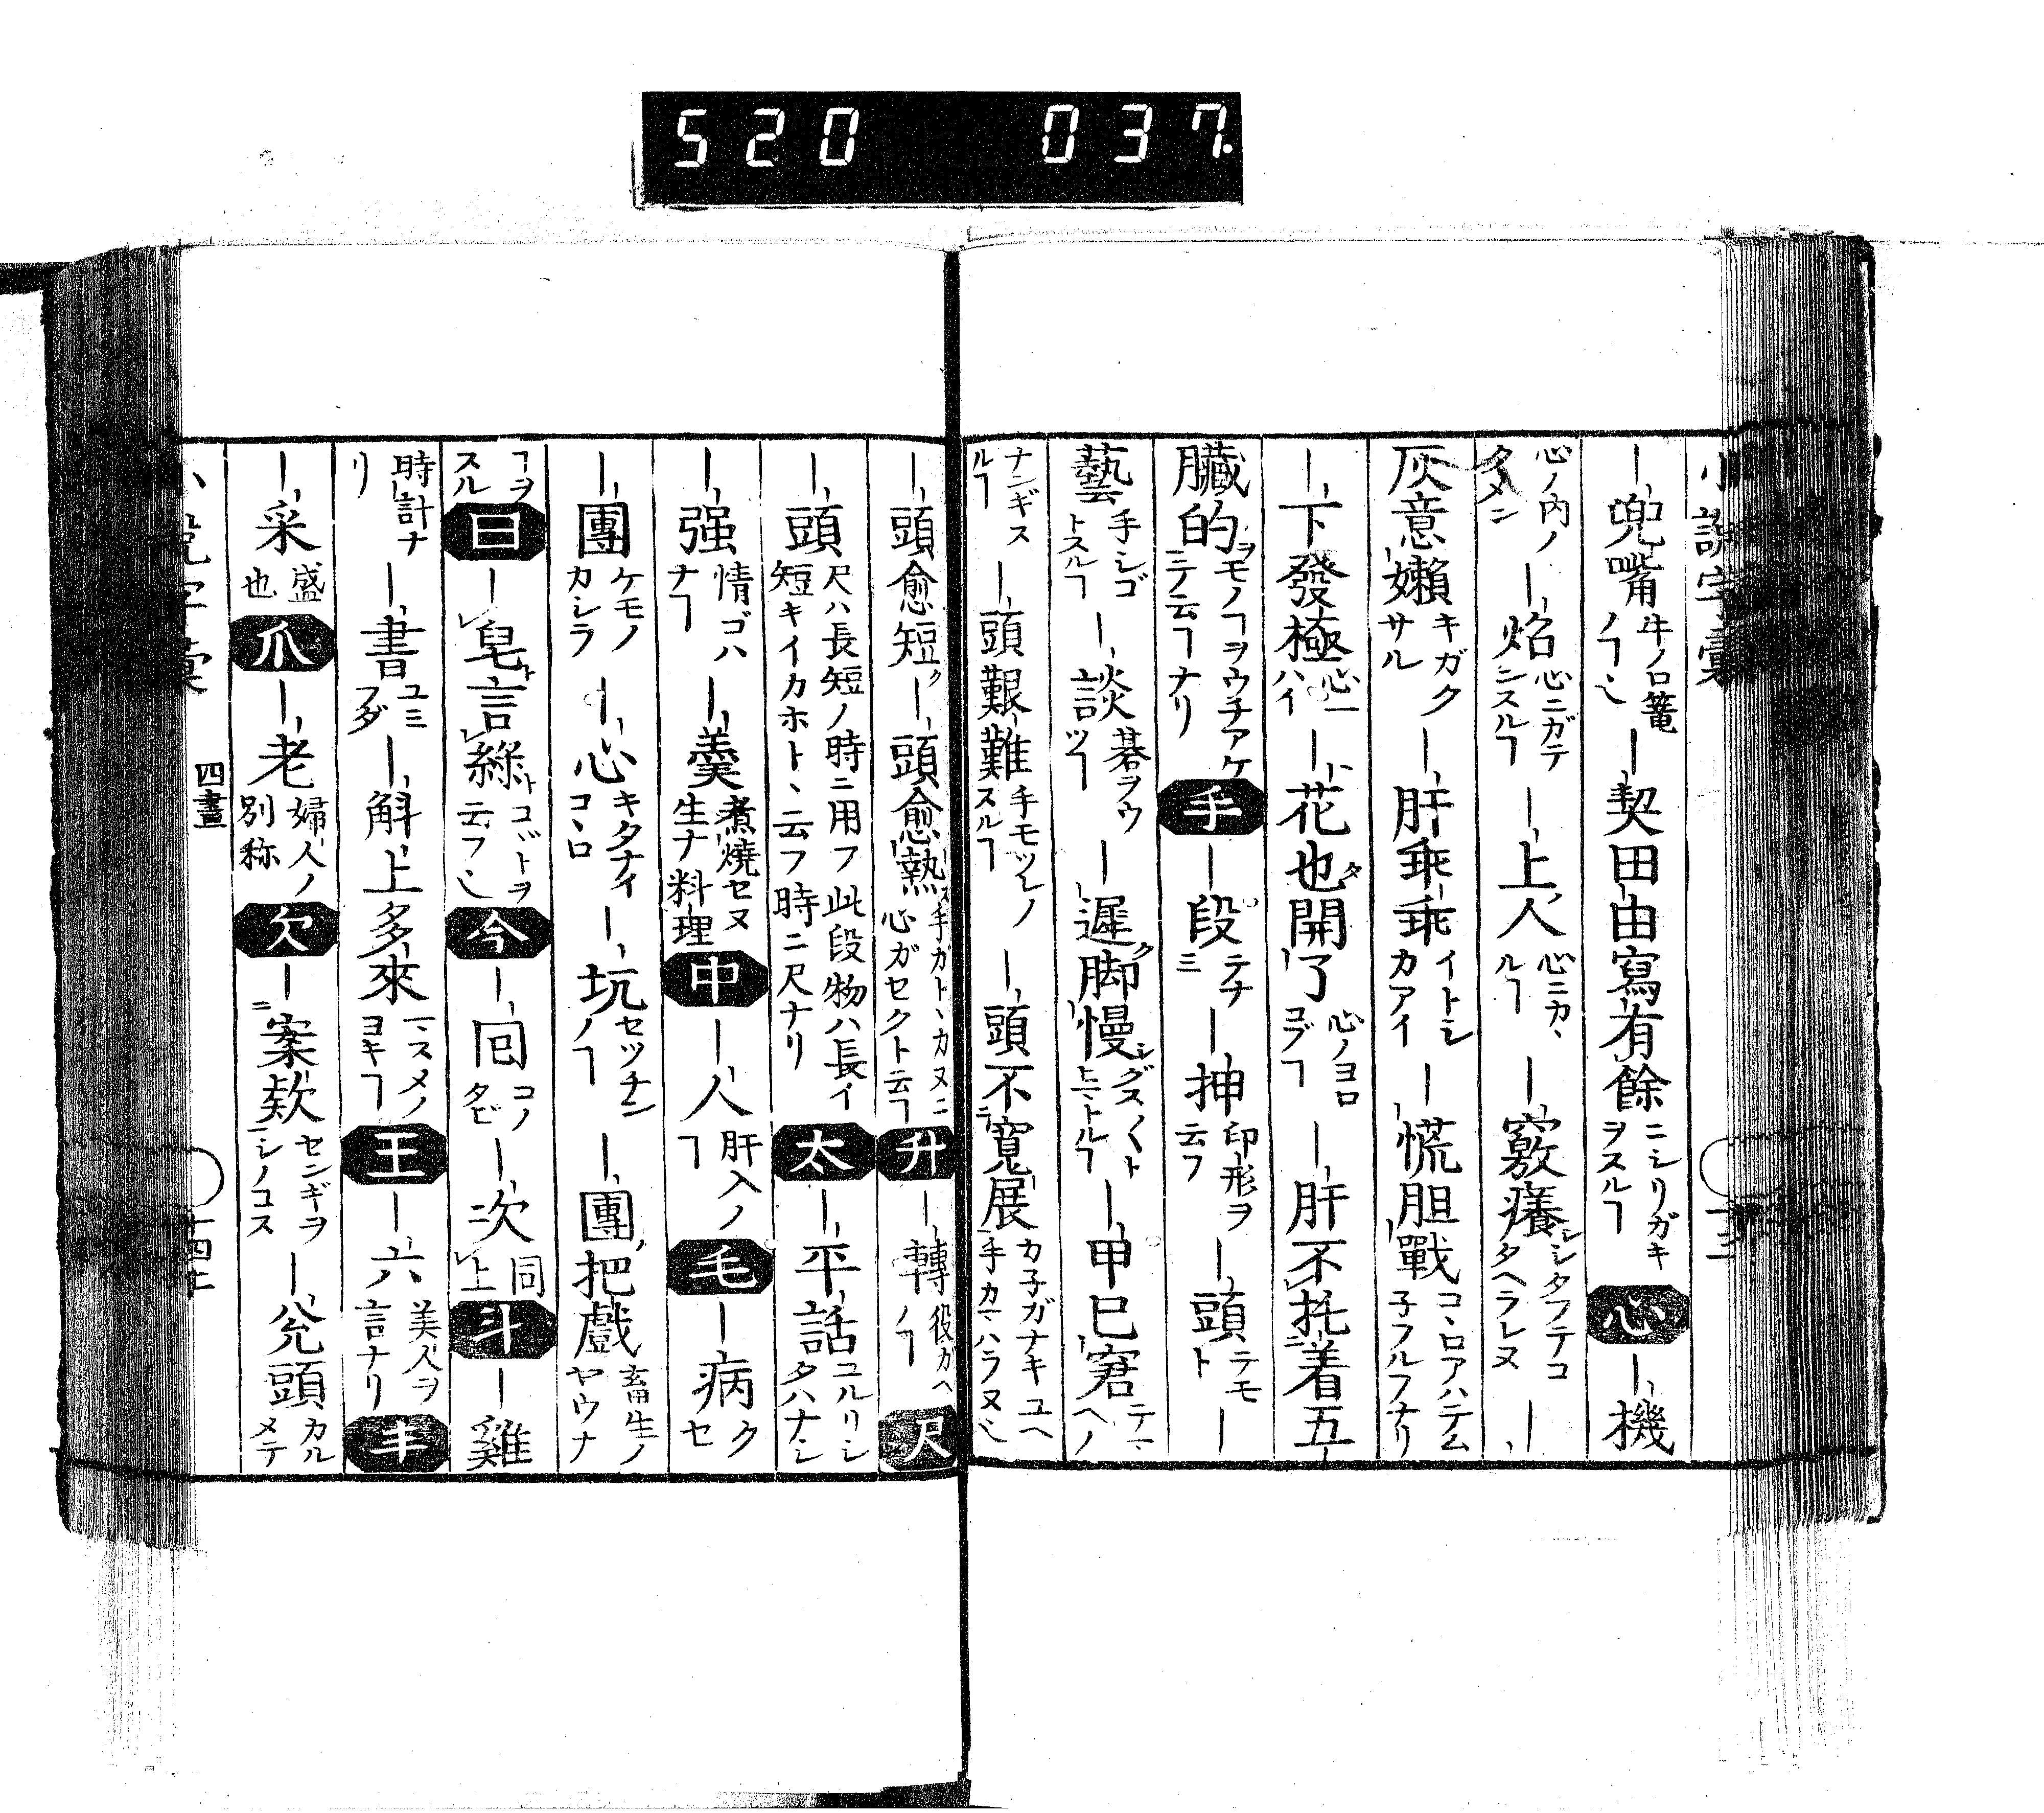 520 037.
小說字彙
—兜嘴 牛ノ口篭ノヿ也 —契 田由寫有餘 ニシリガキヲスルヿ 心 —機
心ノ内ノタメン —焰 心ニガテンスルヿ —上人 心ニカヽルヿ —竅癢 シンタフテコタヘラレヌ —
灰意嬾 キガクサル —肝乖乖 イトシカアイ —慌胆戰 コヽロアハテム子フルフナリ
—下發極 心一ハイ —花也開了 心ノヨロコブヿ —肝不托着五
臟的 ヲモノヿヲウチアケニテ云フヿナリ 手 —段 テナミ —抻 印形ヲ云フ —頭 テモト —
藝 手シゴトスルヿ —談 碁ヲウツヿ —遲脚慢 グズ〱トヒマトルヿ —甲已窘 テマヘノ
ナンギスルヿ —頭艱難 手モツレノスルヿ —頭不寬展 カ子ガナキユヘ手カマハラヌ也
十三
—頭愈短 —頭愈熱 手ガトヽカヌニ心ガセクト云ヿ 升 —轉 役ガヘノヿ 尺
—頭 尺ハ長短ノ時ニ用フ此段物ハ長イ短キイカホトヽ云フ時ニ尺ナリ 太 —平話 ユルリシタハナシ
—强 情ゴハナヿ —羹 煮燒セヌ生ナ料理 中 —人 肝入ノヿ 毛 —病 クセ
—團 ケモノカシラ —心 キタナイコヽロ —坑 セツチンノヿ —團把戲 畜生ノヤウナ
ヿヲスル 曰 —皂言綠 コヾトヲ云フ也 今 —囘 コノタビ —次 同上 斗 —雞
時計ナリ —書 ユミフダ —斛上多來 一スメノヨキヿ 王 —六 美人ヲ言ナリ 丰
—采 盛也 爪 —老 婦人ノ別称 欠 —案欵 センギヲシノコス —兊頭 カルメテ
小說字彙 四畫 十四